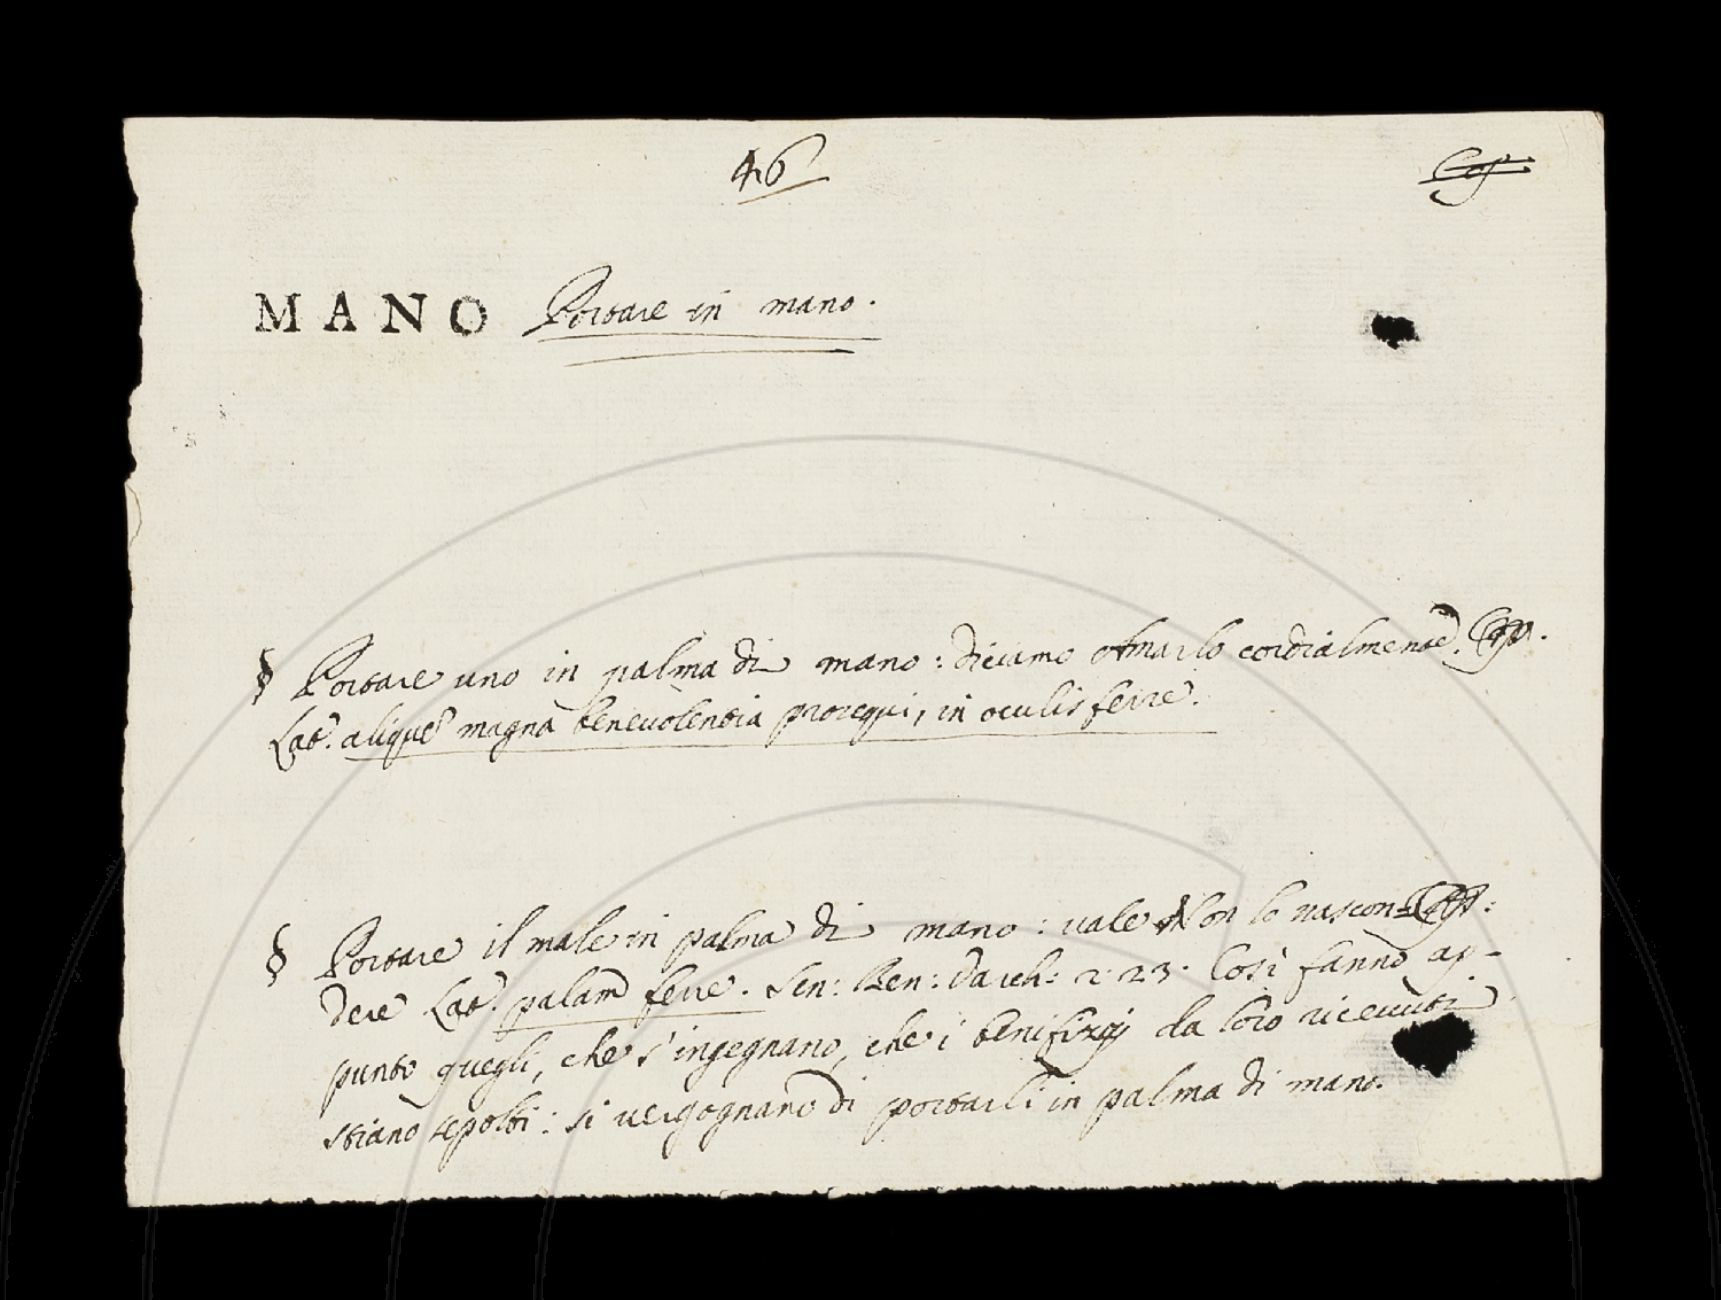 46
MANO Portare in mano.
§ Portare uno in palma di mano: diciamo Amarlo cordialmente.
Lat. aliquē magna benevolentia prosequi, in oculis ferre.
§ Portare il male in palma di mano: vale Non lo nascon=
dere Lat. palam ferre. Sen: Ben: Varch: 2. 23. Così fanno ap-
punto quegli, che s'ingegnano, che i benifizij da loro ricevuti
stiano sepolti: si vergognano di portarli in palma di mano.